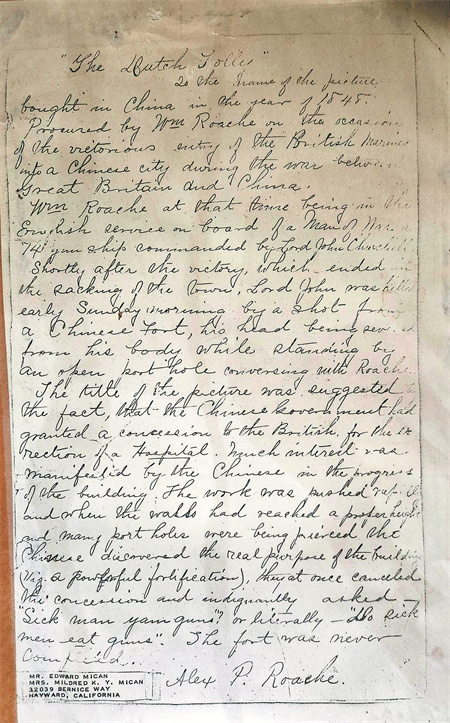 "The Dutch Folly"
Is the name of the picture
bought in China in the year of 1848.
Procured by Wm Roache on the occasion
of the victorious entry of the British Marines
into a Chinese city during the war between
Great Britain and China.
Wm Roache at that time being in the
English service on board of a Man of War a
74 gun ship commanded by Lord John Churchill
Shortly after the victory, which ended in
the sacking of the town, Lord John was killed
early Sunday morning by a shot from
a Chinese Fort, his head being severed
from his body while standing by
an open port hole conversing with Roache.
The title of the picture was suggested
the fact, that the Chinese Government had
granted a concession to the British for the e
rection of a Hospital. Much interest was
manifested by the Chinese in the progress
of the building. The work was pushed rapidly
and when the walls had reached a proper height
and many port holes were being pierced the
Chinese discovered the real purpose of the building
(Viz. a powerful fortification), they at once canceled
the concession and indignantly asked –
"Sick man yam guns"? or literally – "do sick
men eat guns". The fort was never
Alex P. Roache.
MR. EDWARD MICAN
MRS. MILDRED K. Y. MICAN
32039 BERNICE WAY
HAYWARD, CALIFORNIA